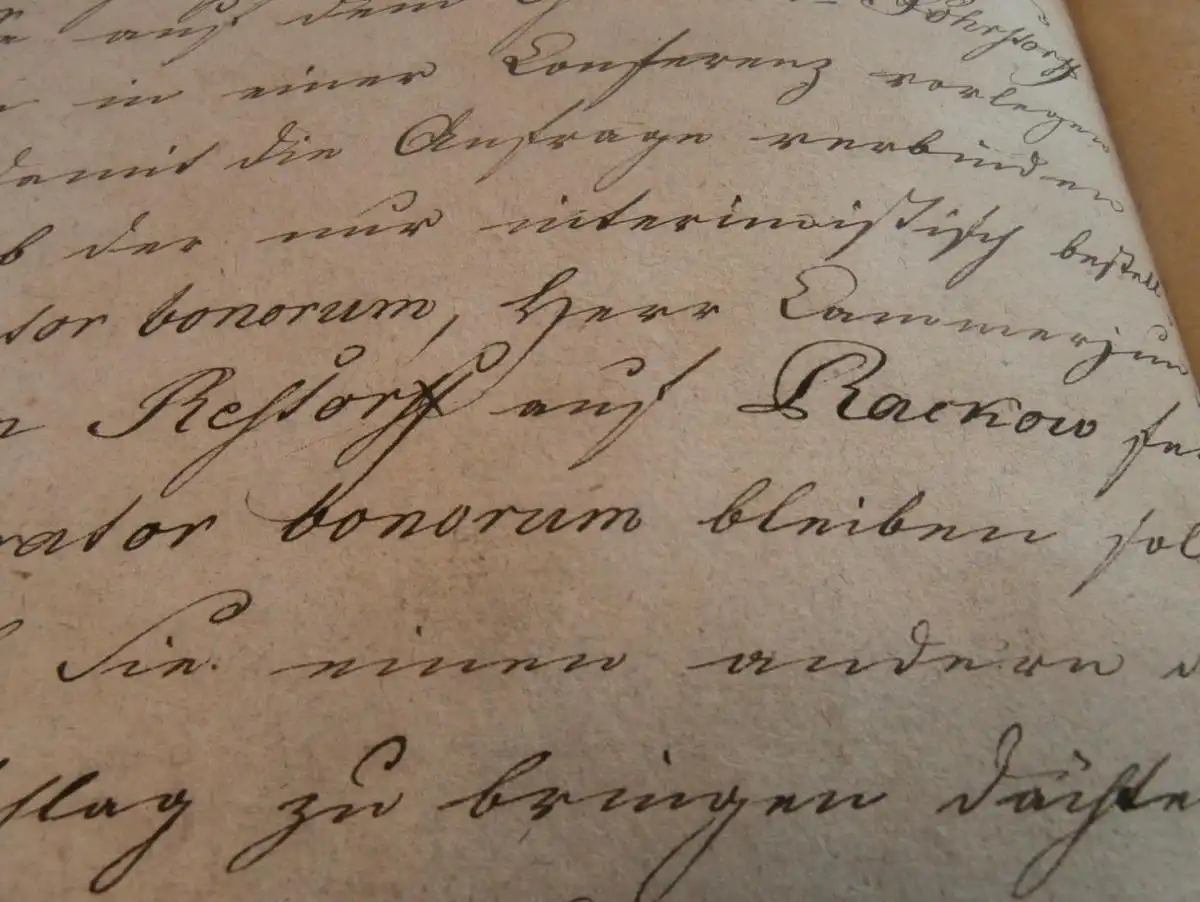 auf dem Röhrstorff
in einer Conferenz vorlegen
damit die Anfrage verbinden
ob der nur interimistisch bestell
tor bonorum, Herr Cammerjun
n Restorff auf Rackow fer
rator bonorum bleiben sol
Sie einen andern d
hlag zu bringen dächte